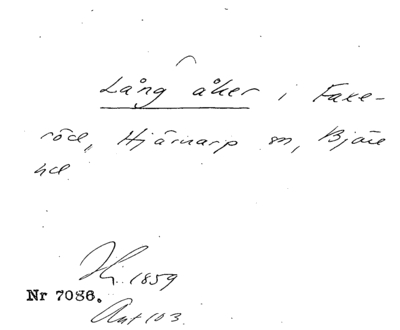 Lång åker i Faxe-
röd, Hjärnarp sn, Bjäre
hd
Hj. 1859
Nr 7086.
Ant 103